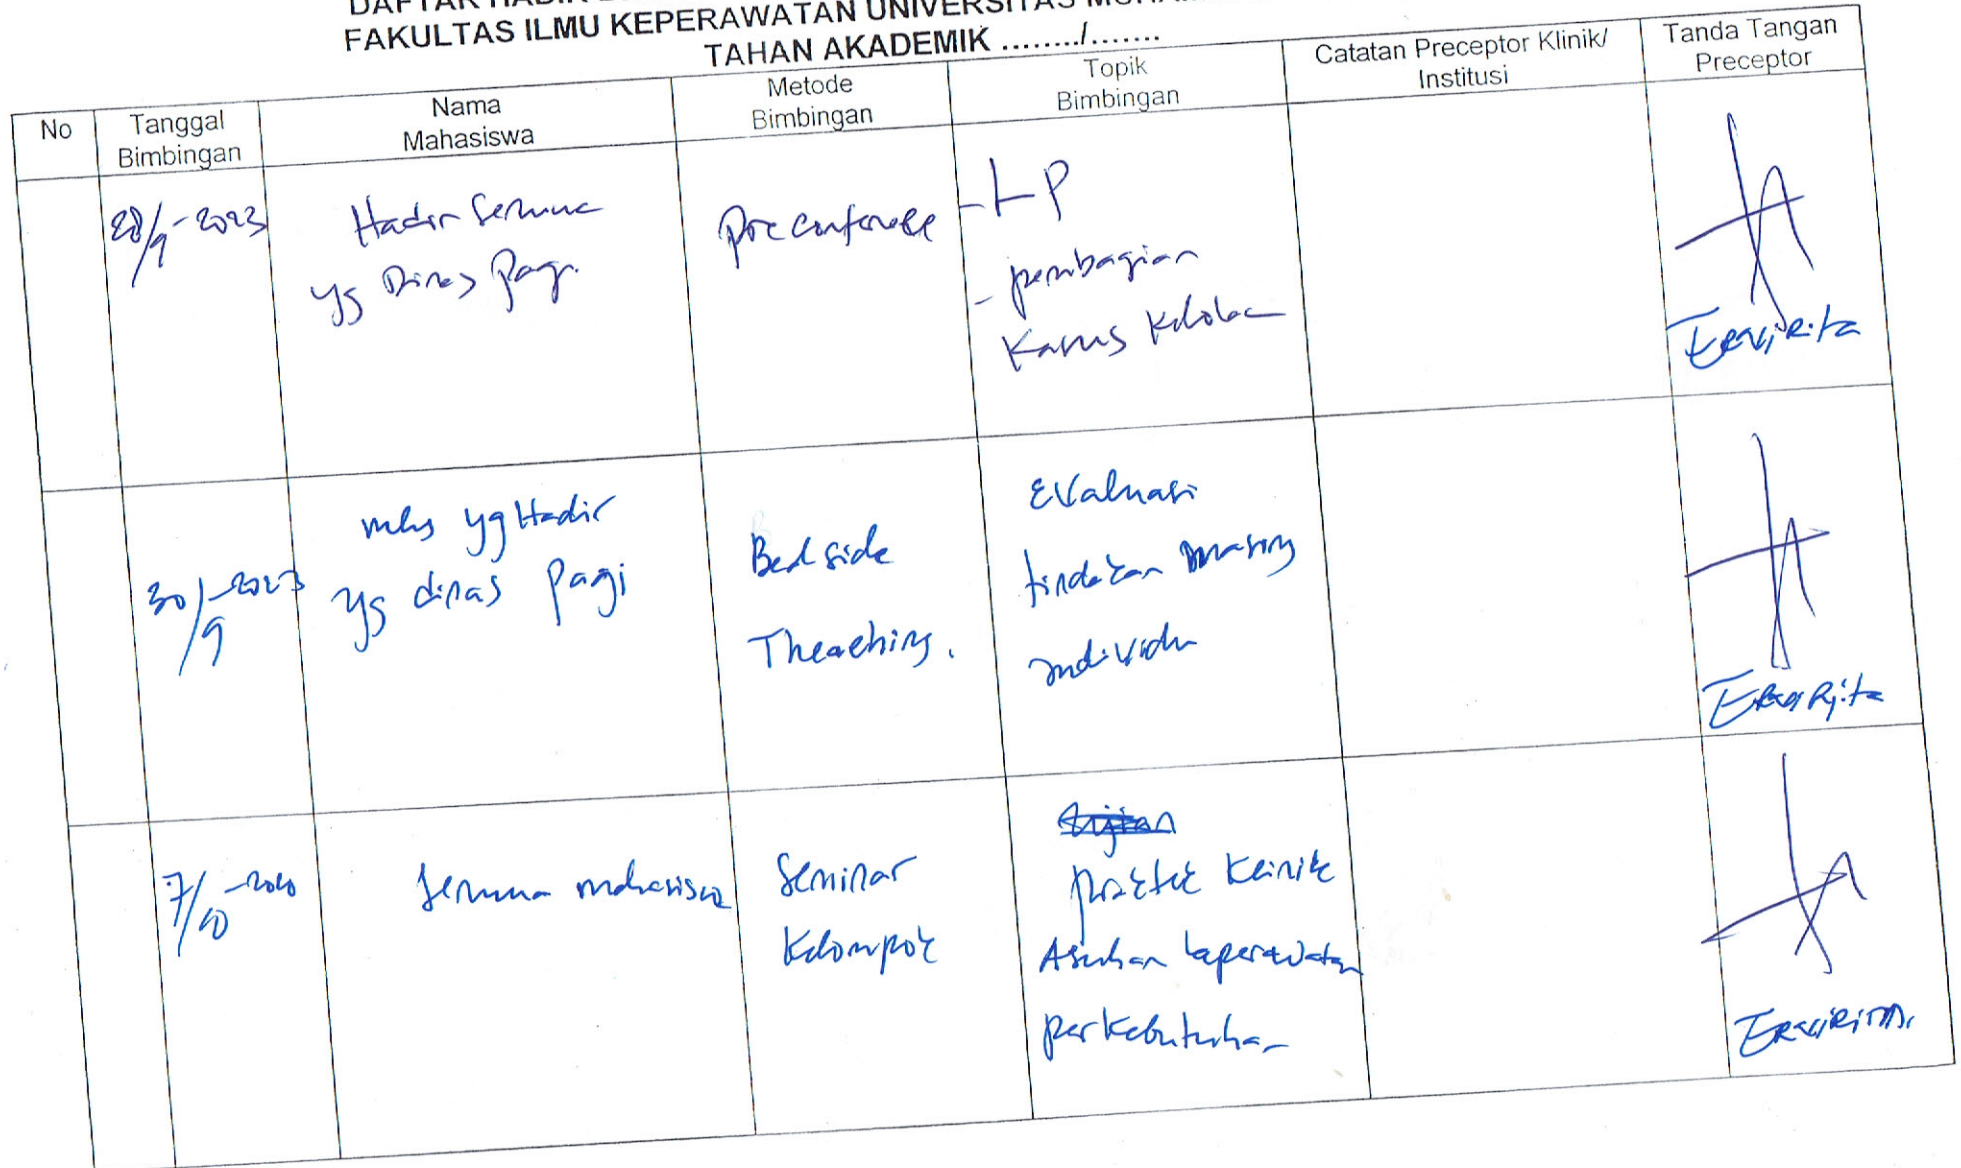 DAFTAR HADIR
FAKULTAS ILMU KEPERAWATAN UNIVERSITAS
TAHAN AKADEMIK ......../.......
No
Tanggal
Bimbingan
Nama
Mahasiswa
Metode
Bimbingan
Topik
Bimbingan
Catatan Preceptor Klinik/
Institusi
Tanda Tangan
Preceptor
28/9-2023
Hadir Semua
yg Dinas pagi.
Pre Conference
- LP
- pembagian
Kasus Kelolaan
30/9-2023
mhs yg Hadir
yg dinas pagi
Bed side
Theaching.
Evaluasi
tindakan masing
individu
7/10
Semua mahasiswa
Seminar
Kelompok
praktek Klinik
Asuhan keperawatan
perkebutuhan